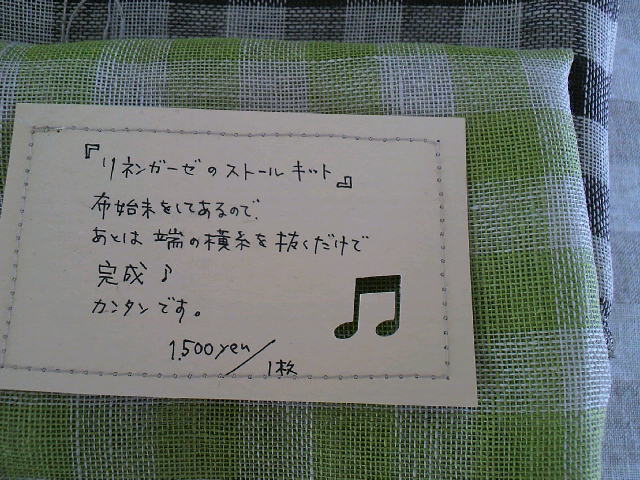 『リネンガーゼのストールキット』
布始末をしてあるので、
あとは端の横糸を抜くだけで
完成♪
カンタンです。
1,500yen/1枚